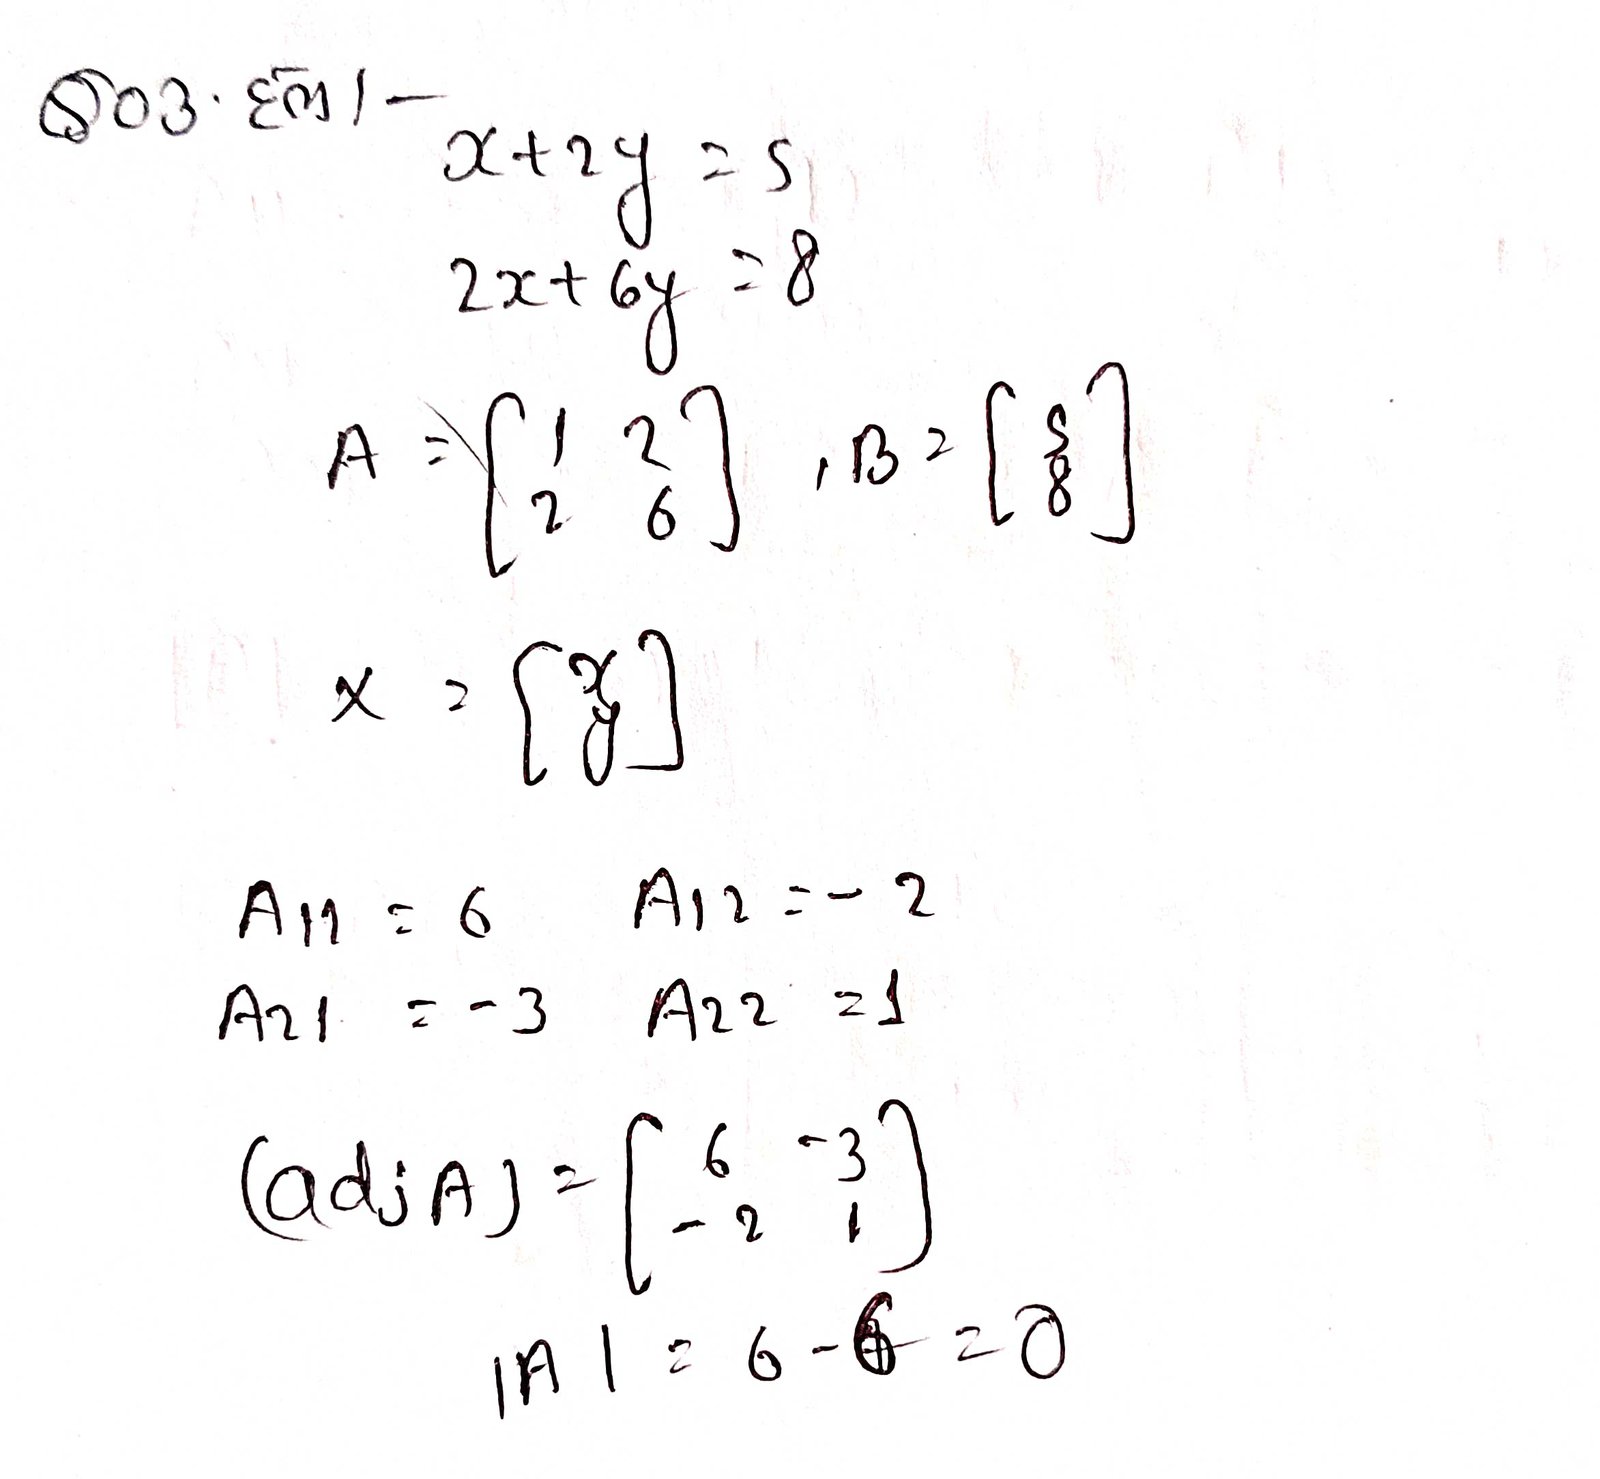 Q03. हल।-
x+2y = 5
2x+6y = 8
A = [1 2
2 6], B = [5
8]
x = [x
y]
A11 = 6 A12 = -2
A21 = -3 A22 = 1
(adjA) = [6 -3
-2 1]
|A| = 6-6 = 0